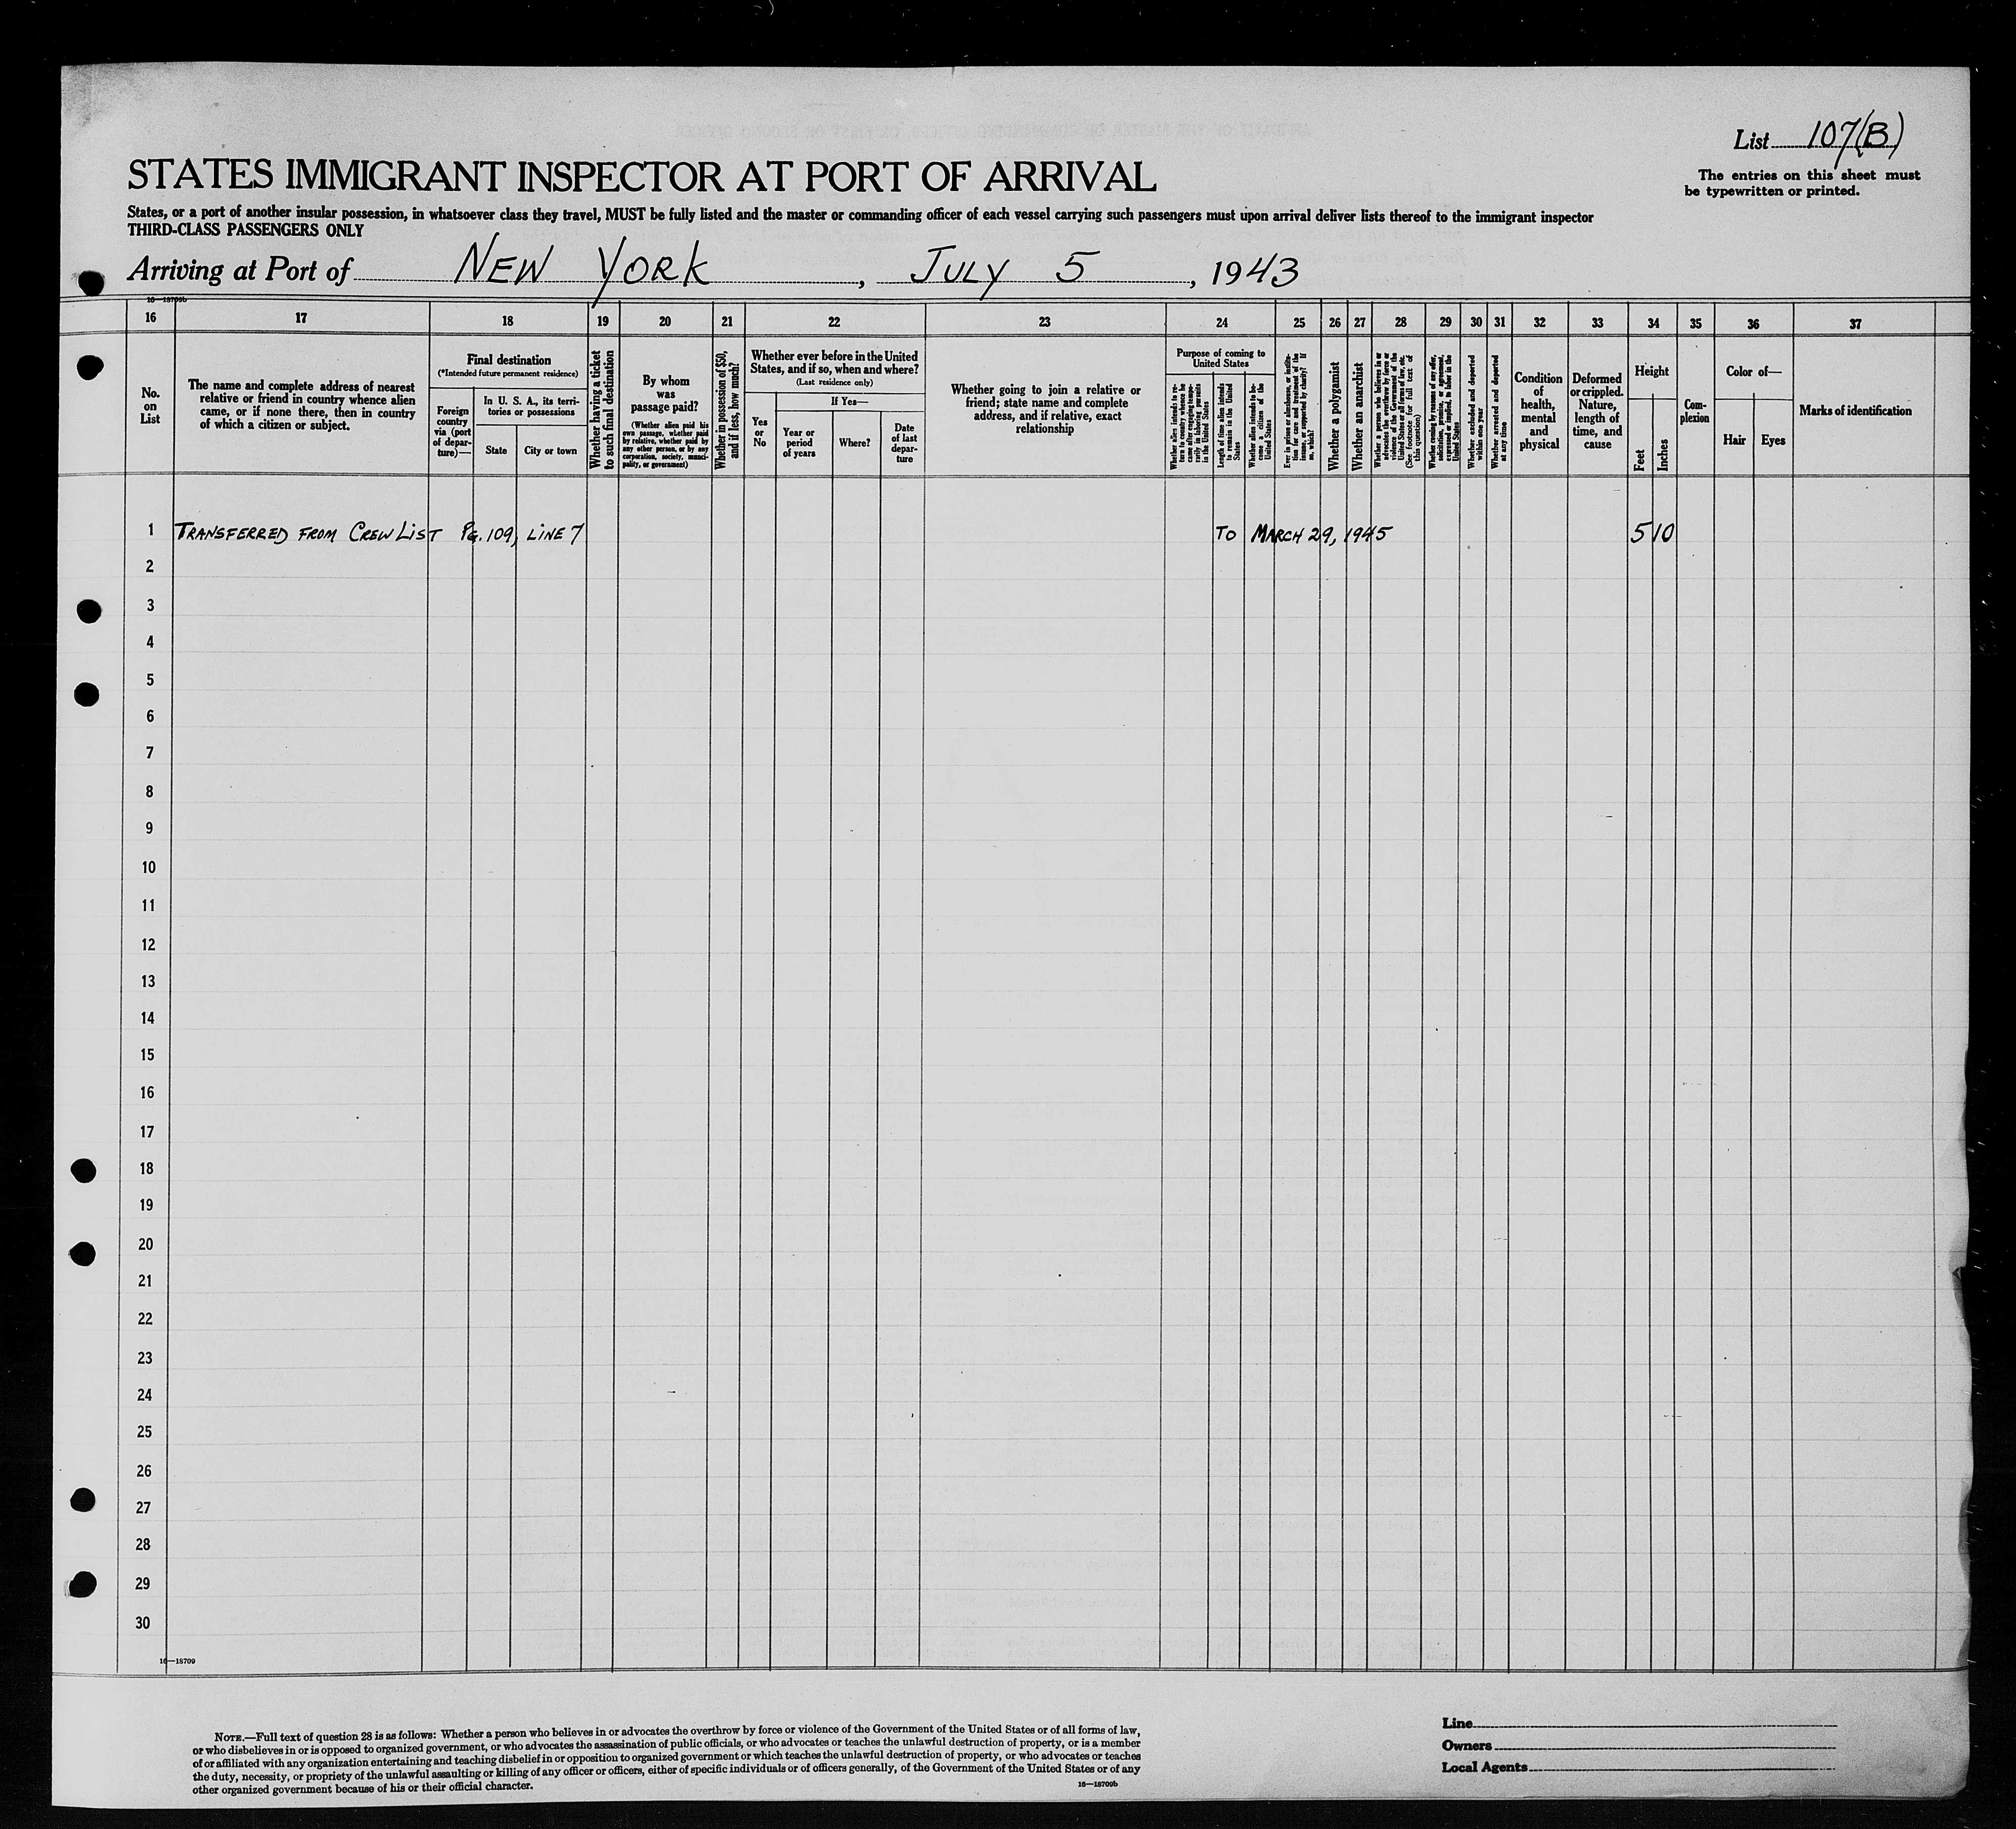 List 107(B)
The entries on this sheet must
be typewritten or printed.
STATES IMMIGRANT INSPECTOR AT PORT OF ARRIVAL
States, or a port of another insular possession, in whatsoever class they travel, MUST be fully listed and the master or commanding officer of each vessel carrying such passengers must upon arrival deliver lists thereof to the immigrant inspector
THIRD-CLASS PASSENGERS ONLY
Arriving at Port of NEW YORK, JULY 5, 1943
16—18709b
16 17 18 19 20 21 22 23 24 25 26 27 28 29 30 31 32 33 34 35 36 37
No.
on
List
The name and complete address of nearest
relative or friend in country whence alien
came, or if none there, then in country
of which a citizen or subject.
Final destination
(*Intended future permanent residence)
Foreign
country
via (port
of depar-
ture)—
In U. S. A., its terri-
tories or possessions
State
City or town
Whether having a ticket
to such final destination
By whom
was
passage paid?
(Whether alien paid his
own passage, whether paid
by relative, whether paid by
any other person, or by any
corporation, society, munici-
pality, or government)
Whether in possession of $50,
and if less, how much?
Whether ever before in the United
States, and if so, when and where?
(Last residence only)
Yes
or
No
If Yes—
Year or
period
of years
Where?
Date
of last
depar-
ture
Whether going to join a relative or
friend; state name and complete
address, and if relative, exact
relationship
Purpose of coming to
United States
Whether alien intends to re-
turn to country whence he
came after engaging tempo-
rarily in laboring pursuits
in the United States
Length of time alien intends
to remain in the United
States
Whether alien intends to be-
come a citizen of the
United States
Ever in prison or almshouse, or institu-
tion for care and treatment of the
insane, or supported by charity? If
so, which?
Whether a polygamist
Whether an anarchist
Whether a person who believes in or
advocates the overthrow by force or
violence of the Government of the
United States or all forms of law, etc.
(See footnote for full text of
this question)
Whether coming by reason of any offer,
solicitation, promise, or agreement,
expressed or implied, to labor in the
United States
Whether excluded and deported
within one year
Whether arrested and deported
at any time
Condition
of
health,
mental
and
physical
Deformed
or crippled.
Nature,
length of
time, and
cause
Height
Feet
Inches
Com-
plexion
Color of—
Hair
Eyes
Marks of identification
1 TRANSFERRED FROM CREW LIST PG. 109, LINE 7 TO MARCH 29, 1945 5 10
2
3
4
5
6
7
8
9
10
11
12
13
14
15
16
17
18
19
20
21
22
23
24
25
26
27
28
29
30
16—18709
NOTE.—Full text of question 28 is as follows: Whether a person who believes in or advocates the overthrow by force or violence of the Government of the United States or of all forms of law,
or who disbelieves in or is opposed to organized government, or who advocates the assassination of public officials, or who advocates or teaches the unlawful destruction of property, or is a member
of or affiliated with any organization entertaining and teaching disbelief in or opposition to organized government or which teaches the unlawful destruction of property, or who advocates or teaches
the duty, necessity, or propriety of the unlawful assaulting or killing of any officer or officers, either of specific individuals or of officers generally, of the Government of the United States or of any
other organized government because of his or their official character.
16—18709b
Line
Owners
Local Agents